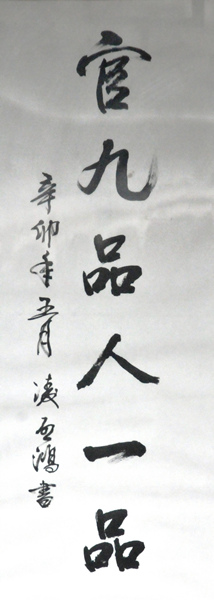 官九品人一品
辛卯年五月 凌 鴻書